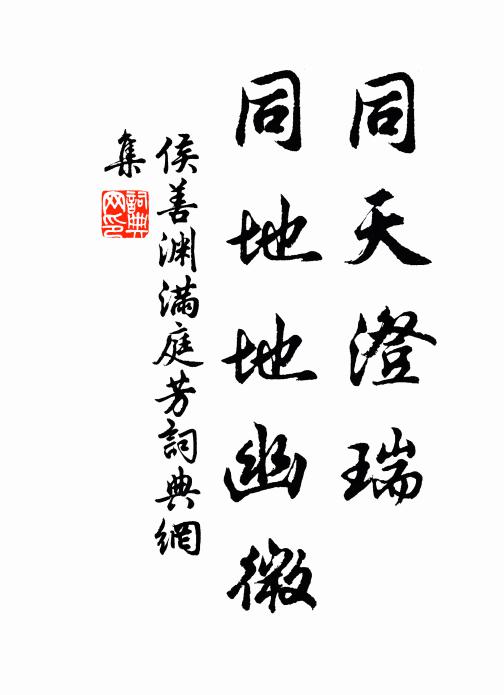 同天澄瑞
同地地幽微
侯善渊满庭芳詞典網
集
詞典
网印